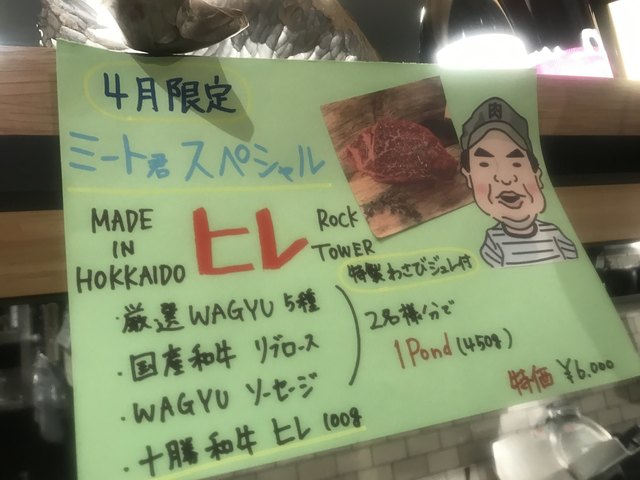 4月限定
ミート君 スペシャル
肉
MADE
IN
HOKKAIDO
ヒレ
ROCK
TOWER
特製わさびジュレ付
・厳選WAGYU 5種
・国産和牛 リブロース
・WAGYU ソーセージ
・十勝和牛 ヒレ 100g
2名様分で
1Pond (450g)
特価 ¥6.000